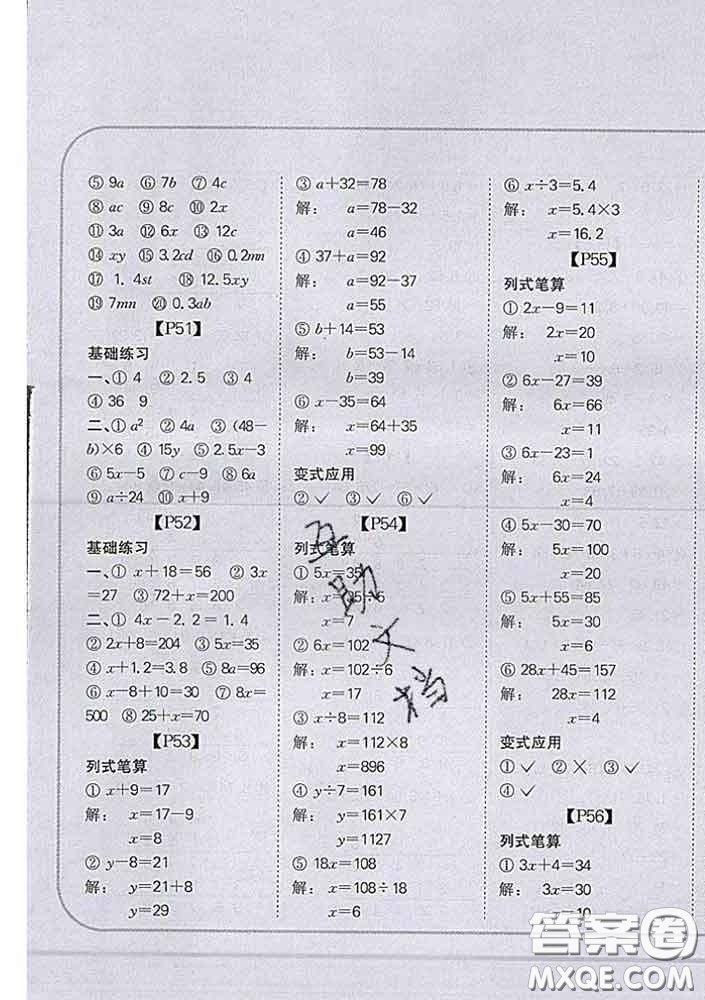 ⑤ 9a ⑥ 7b ⑦ 4c
⑧ ac ⑨ 6c ⑩ 2x
⑪ 3a ⑫ 6x ⑬ 12c
⑭ xy ⑮ 3.2cd ⑯ 0.2mn
⑰ 1.4st ⑱ 12.5xy
⑲ 7mn ⑳ 0.3ab
【P51】
基础练习
一、① 4 ② 2.5 ③ 4
④ 36 9
二、① a² ② 4a ③ (48−
b)×6 ④ 15y ⑤ 2.5x−3
⑥ 5x−5 ⑦ c−9 ⑧ 6a
⑨ a÷24 ⑩ x+9
【P52】
基础练习
一、① x+18=56 ② 3x
=27 ③ 72+x=200
二、① 4x−2.2=1.4
② 2x+8=204 ③ 5x=35
④ x+1.2=3.8 ⑤ 8a=96
⑥ x−8+10=30 ⑦ 8x=
500 ⑧ 25+x=70
【P53】
列式笔算
① x+9=17
解： x=17−9
x=8
② y−8=21
解： y=21+8
y=29
③ a+32=78
解： a=78−32
a=46
④ 37+a=92
解： a=92−37
a=55
⑤ b+14=53
解： b=53−14
b=39
⑥ x−35=64
解： x=64+35
x=99
变式应用
② ✓ ③ ✓ ⑥ ✓
【P54】
列式笔算
① 5x=35
解： x=35÷5
x=7
② 6x=102
解： x=102÷6
x=17
③ x÷8=112
解： x=112×8
x=896
④ y÷7=161
解： y=161×7
y=1127
⑤ 18x=108
解： x=108÷18
x=6
⑥ x÷3=5.4
解： x=5.4×3
x=16.2
【P55】
列式笔算
① 2x−9=11
解： 2x=20
x=10
② 6x−27=39
解： 6x=66
x=11
③ 6x−23=1
解： 6x=24
x=4
④ 5x−30=70
解： 5x=100
x=20
⑤ 5x+55=85
解： 5x=30
x=6
⑥ 28x+45=157
解： 28x=112
x=4
变式应用
① ✓ ② ✕ ③ ✓
④ ✓
【P56】
列式笔算
① 3x+4=34
解： 3x=30
x=10
互助文档
答案圈
MXQE.COM